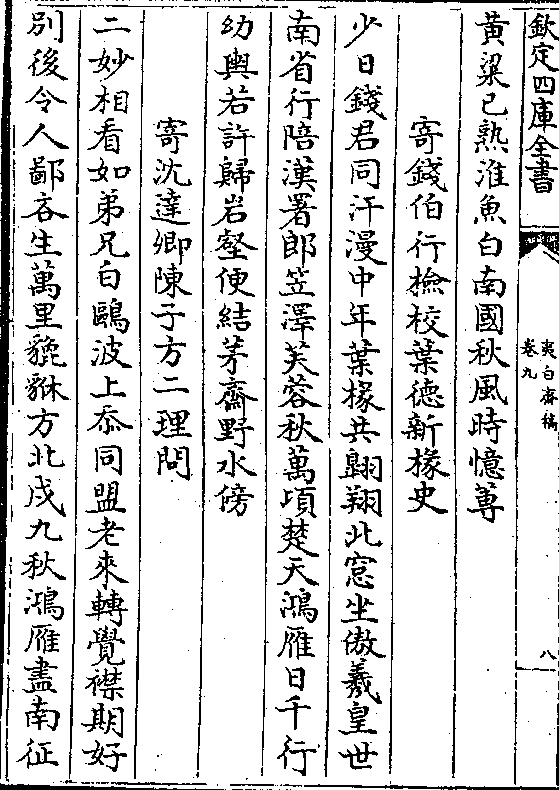 欽定四庫全書
夷白齋稿
卷九
八
黃粱已熟淮魚白南國秋風時憶蓴
寄錢伯行檢校葉德新掾史
少日錢君同汗漫中年葉掾共翺翔北窓坐傲羲皇世
南省行陪漢署郎笠澤芙蓉秋萬頃楚天鴻雁日千行
幼輿若許歸岩壑便結茅齋野水傍
寄沈達卿陳子方二理問
二妙相看如弟兄白鷗波上忝同盟老來轉覺襟期好
別後令人鄙吝生萬里貔貅方北戍九秋鴻雁盡南征